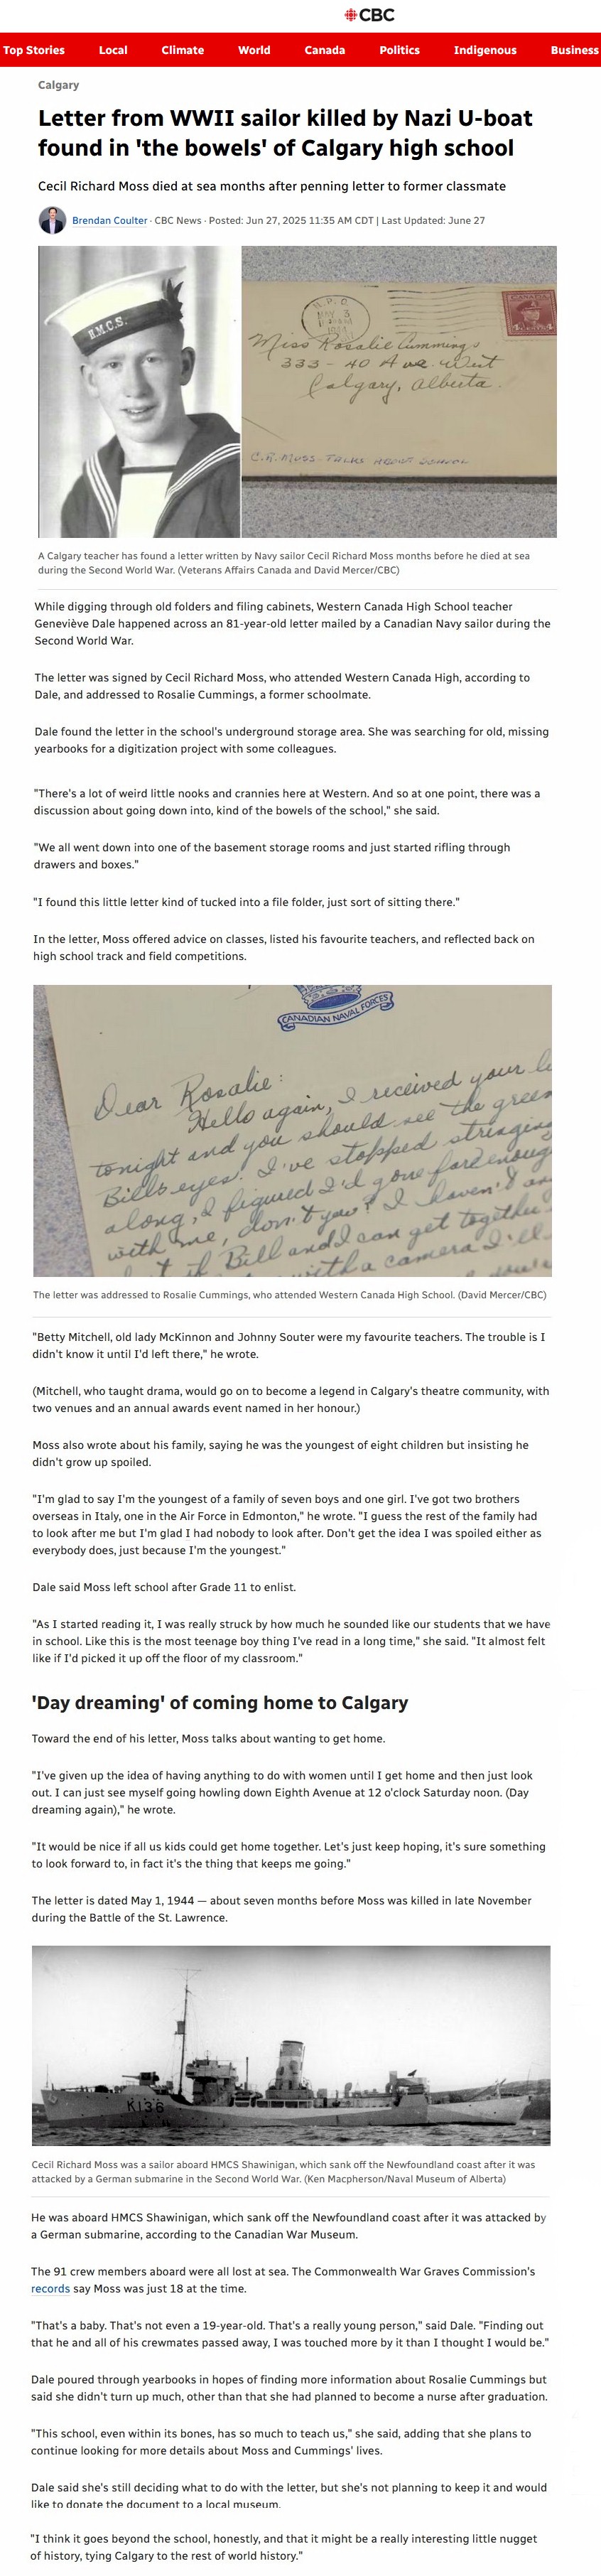 CBC
Top Stories Local Climate World Canada Politics Indigenous Business
Calgary
Letter from WWII sailor killed by Nazi U-boat
found in 'the bowels' of Calgary high school
Cecil Richard Moss died at sea months after penning letter to former classmate
Brendan Coulter · CBC News · Posted: Jun 27, 2025 11:35 AM CDT | Last Updated: June 27
H.M.C.S.
MAY 3
1944
Miss Rosalie Cummings
333 - 40 Ave. West
Calgary, Alberta.
C.R. MOSS - TALKS ABOUT SCHOOL
A Calgary teacher has found a letter written by Navy sailor Cecil Richard Moss months before he died at sea
during the Second World War. (Veterans Affairs Canada and David Mercer/CBC)
While digging through old folders and filing cabinets, Western Canada High School teacher
Geneviève Dale happened across an 81-year-old letter mailed by a Canadian Navy sailor during the
Second World War.
The letter was signed by Cecil Richard Moss, who attended Western Canada High, according to
Dale, and addressed to Rosalie Cummings, a former schoolmate.
Dale found the letter in the school's underground storage area. She was searching for old, missing
yearbooks for a digitization project with some colleagues.
"There's a lot of weird little nooks and crannies here at Western. And so at one point, there was a
discussion about going down into, kind of the bowels of the school," she said.
"We all went down into one of the basement storage rooms and just started rifling through
drawers and boxes."
"I found this little letter kind of tucked into a file folder, just sort of sitting there."
In the letter, Moss offered advice on classes, listed his favourite teachers, and reflected back on
high school track and field competitions.
CANADIAN NAVAL FORCES
Dear Rosalie:
Hello again, I received your
tonight and you should see the green
Bills eyes. I've stopped stringing
along, I figured I'd gone far enough
with me, don't you? I haven't
if Bill and I can get together
with a camera I'll
The letter was addressed to Rosalie Cummings, who attended Western Canada High School. (David Mercer/CBC)
"Betty Mitchell, old lady McKinnon and Johnny Souter were my favourite teachers. The trouble is I
didn't know it until I'd left there," he wrote.
(Mitchell, who taught drama, would go on to become a legend in Calgary's theatre community, with
two venues and an annual awards event named in her honour.)
Moss also wrote about his family, saying he was the youngest of eight children but insisting he
didn't grow up spoiled.
"I'm glad to say I'm the youngest of a family of seven boys and one girl. I've got two brothers
overseas in Italy, one in the Air Force in Edmonton," he wrote. "I guess the rest of the family had
to look after me but I'm glad I had nobody to look after. Don't get the idea I was spoiled either as
everybody does, just because I'm the youngest."
Dale said Moss left school after Grade 11 to enlist.
"As I started reading it, I was really struck by how much he sounded like our students that we have
in school. Like this is the most teenage boy thing I've read in a long time," she said. "It almost felt
like if I'd picked it up off the floor of my classroom."
'Day dreaming' of coming home to Calgary
Toward the end of his letter, Moss talks about wanting to get home.
"I've given up the idea of having anything to do with women until I get home and then just look
out. I can just see myself going howling down Eighth Avenue at 12 o'clock Saturday noon. (Day
dreaming again)," he wrote.
"It would be nice if all us kids could get home together. Let's just keep hoping, it's sure something
to look forward to, in fact it's the thing that keeps me going."
The letter is dated May 1, 1944 — about seven months before Moss was killed in late November
during the Battle of the St. Lawrence.
K136
Cecil Richard Moss was a sailor aboard HMCS Shawinigan, which sank off the Newfoundland coast after it was
attacked by a German submarine in the Second World War. (Ken Macpherson/Naval Museum of Alberta)
He was aboard HMCS Shawinigan, which sank off the Newfoundland coast after it was attacked by
a German submarine, according to the Canadian War Museum.
The 91 crew members aboard were all lost at sea. The Commonwealth War Graves Commission's
records say Moss was just 18 at the time.
"That's a baby. That's not even a 19-year-old. That's a really young person," said Dale. "Finding out
that he and all of his crewmates passed away, I was touched more by it than I thought I would be."
Dale poured through yearbooks in hopes of finding more information about Rosalie Cummings but
said she didn't turn up much, other than that she had planned to become a nurse after graduation.
"This school, even within its bones, has so much to teach us," she said, adding that she plans to
continue looking for more details about Moss and Cummings' lives.
Dale said she's still deciding what to do with the letter, but she's not planning to keep it and would
like to donate the document to a local museum.
"I think it goes beyond the school, honestly, and that it might be a really interesting little nugget
of history, tying Calgary to the rest of world history."